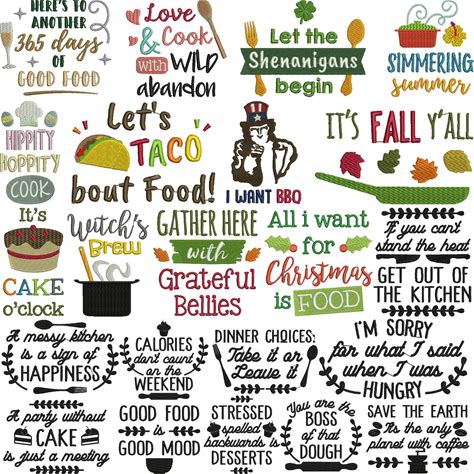 HERE'S TO
ANOTHER
365 days
OF
GOOD FOOD
Love
& Cook
with WILD
abandon
Let the
Shenanigans
begin
SIMMERING
summer
HIPPITY
HOPPITY
COOK
Let's
TACO
bout Food!
I WANT BBQ
IT'S FALL Y'ALL
It's
CAKE
o'clock
Witch's
Brew
GATHER HERE
with
Grateful
Bellies
All i want
for
Christmas
is FOOD
If you can't
stand the heat
GET OUT OF
THE KITCHEN
A messy kitchen
is a sign of
HAPPINESS
CALORIES
don't count
on the
WEEKEND
DINNER CHOICES:
Take it or
Leave it
I'M SORRY
for what I said
when I was
HUNGRY
A party without
CAKE
is just a meeting
GOOD FOOD
IS
GOOD MOOD
STRESSED
spelled
backwards is
DESSERTS
You are the
BOSS
of that
DOUGH
SAVE THE EARTH
It's the only
planet with coffee